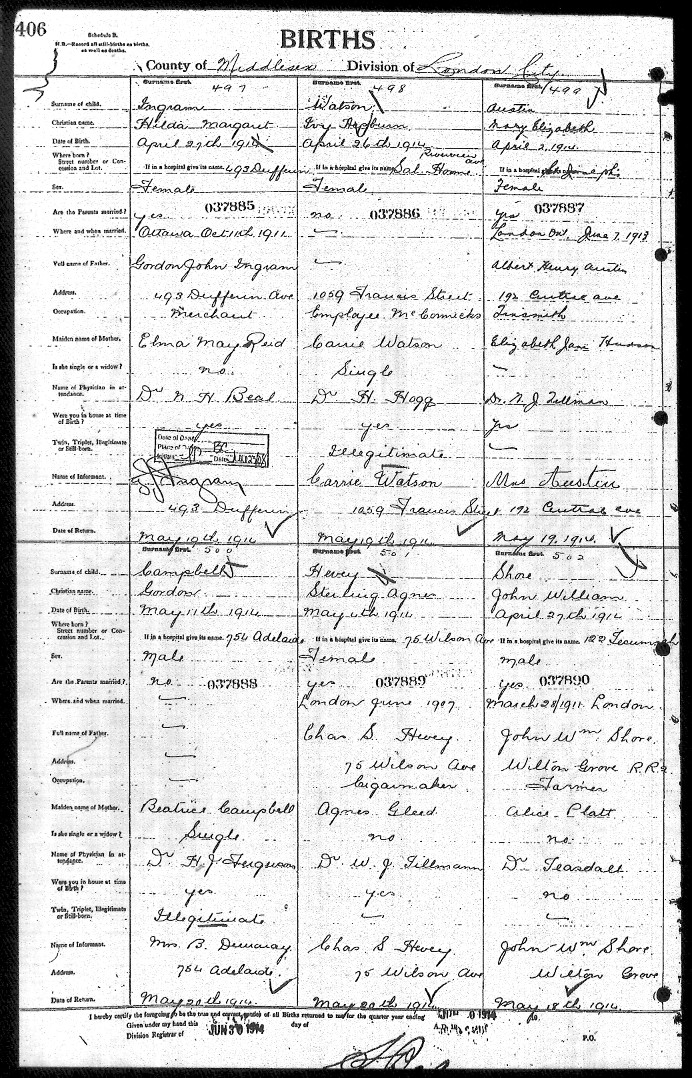 406
Schedule B.
N.B.—Record all still-births as births, as well as deaths.
BIRTHS
County of Middlesex Division of London City
Surname first. Surname first. Surname first.
497 498 499
Surname of child. Ingram Watson Austin
Christian name. Hilda Margaret Ivy Hepburn Mary Elizabeth
Date of Birth. April 27th 1914 April 26th 1914 April 2, 1914
Riverview Ave
Where born? Street number or Concession and Lot. If in a hospital give its name. 493 Dufferin If in a hospital give its name. Sal. Home If in a hospital give its name. St Josephs
Sex. Female Female Female
Are the Parents married? yes 037885 no 037886 Yes 037887
Where and when married. Ottawa Oct 11th 1911 — London Ont. June 7, 1913
Full name of Father. Gordon John Ingram — Albert Henry Austin
Address. 493 Dufferin Ave 1059 Francis Street 192 Central ave
Occupation. Merchant Employee McCormicks Tinsmith
Maiden name of Mother. Elma May Reid Carrie Watson Elizabeth Jane Hudson
Is she single or a widow? no Single —
Name of Physician in attendance. Dr N. H. Beal Dr H. Hogg Dr. N. J. Tillman
Were you in house at time of Birth? yes yes yes
Twin, Triplet, Illegitimate or Still-born. Illegitimate —
Name of Informant. G J Ingram Carrie Watson Mrs Austin
Address. 493 Dufferin 1059 Francis Street 192 Central ave
Date of Return. May 19th 1914 May 19th 1914 May 19, 1914
Surname first. Surname first. Surname first.
500 501 502
Surname of child. Campbell Hevey Shore
Christian name. Gordon Sterling Agnes John William
Date of Birth. May 11th 1914 May 4th 1914 April 27th 1914
Where born? Street number or Concession and Lot. If in a hospital give its name. 754 Adelaide If in a hospital give its name. 75 Wilson Ave If in a hospital give its name. 122 Tecumseh
Sex. Male Female Male
Are the Parents married? no 037888 yes 037889 yes 037890
Where and when married. — London June 1907 March 28/1911 London
Full name of Father. — Chas S. Hevey John Wm Shore
Address. — 75 Wilson Ave Wilton Grove R.R.
Occupation. — Cigarmaker Farmer
Maiden name of Mother. Beatrice Campbell Agnes Gleed Alice Platt
Is she single or a widow? Single no no
Name of Physician in attendance. Dr H. J. Ferguson Dr W. J. Tillmann Dr Teasdall
Were you in house at time of Birth? yes yes no
Twin, Triplet, Illegitimate or Still-born. Illegitimate — —
Name of Informant. Mrs. B. Demaray Chas S Hevey John Wm Shore
Address. 754 Adelaide 75 Wilson Ave Wilton Grove
Date of Return. May 20th 1914 May 20th 1914 May 18th 1914
I hereby certify the foregoing to be the true and correct record of all Births returned to me for the quarter year ending
Given under my hand this JUN 30 1914 day of
Division Registrar of P.O.